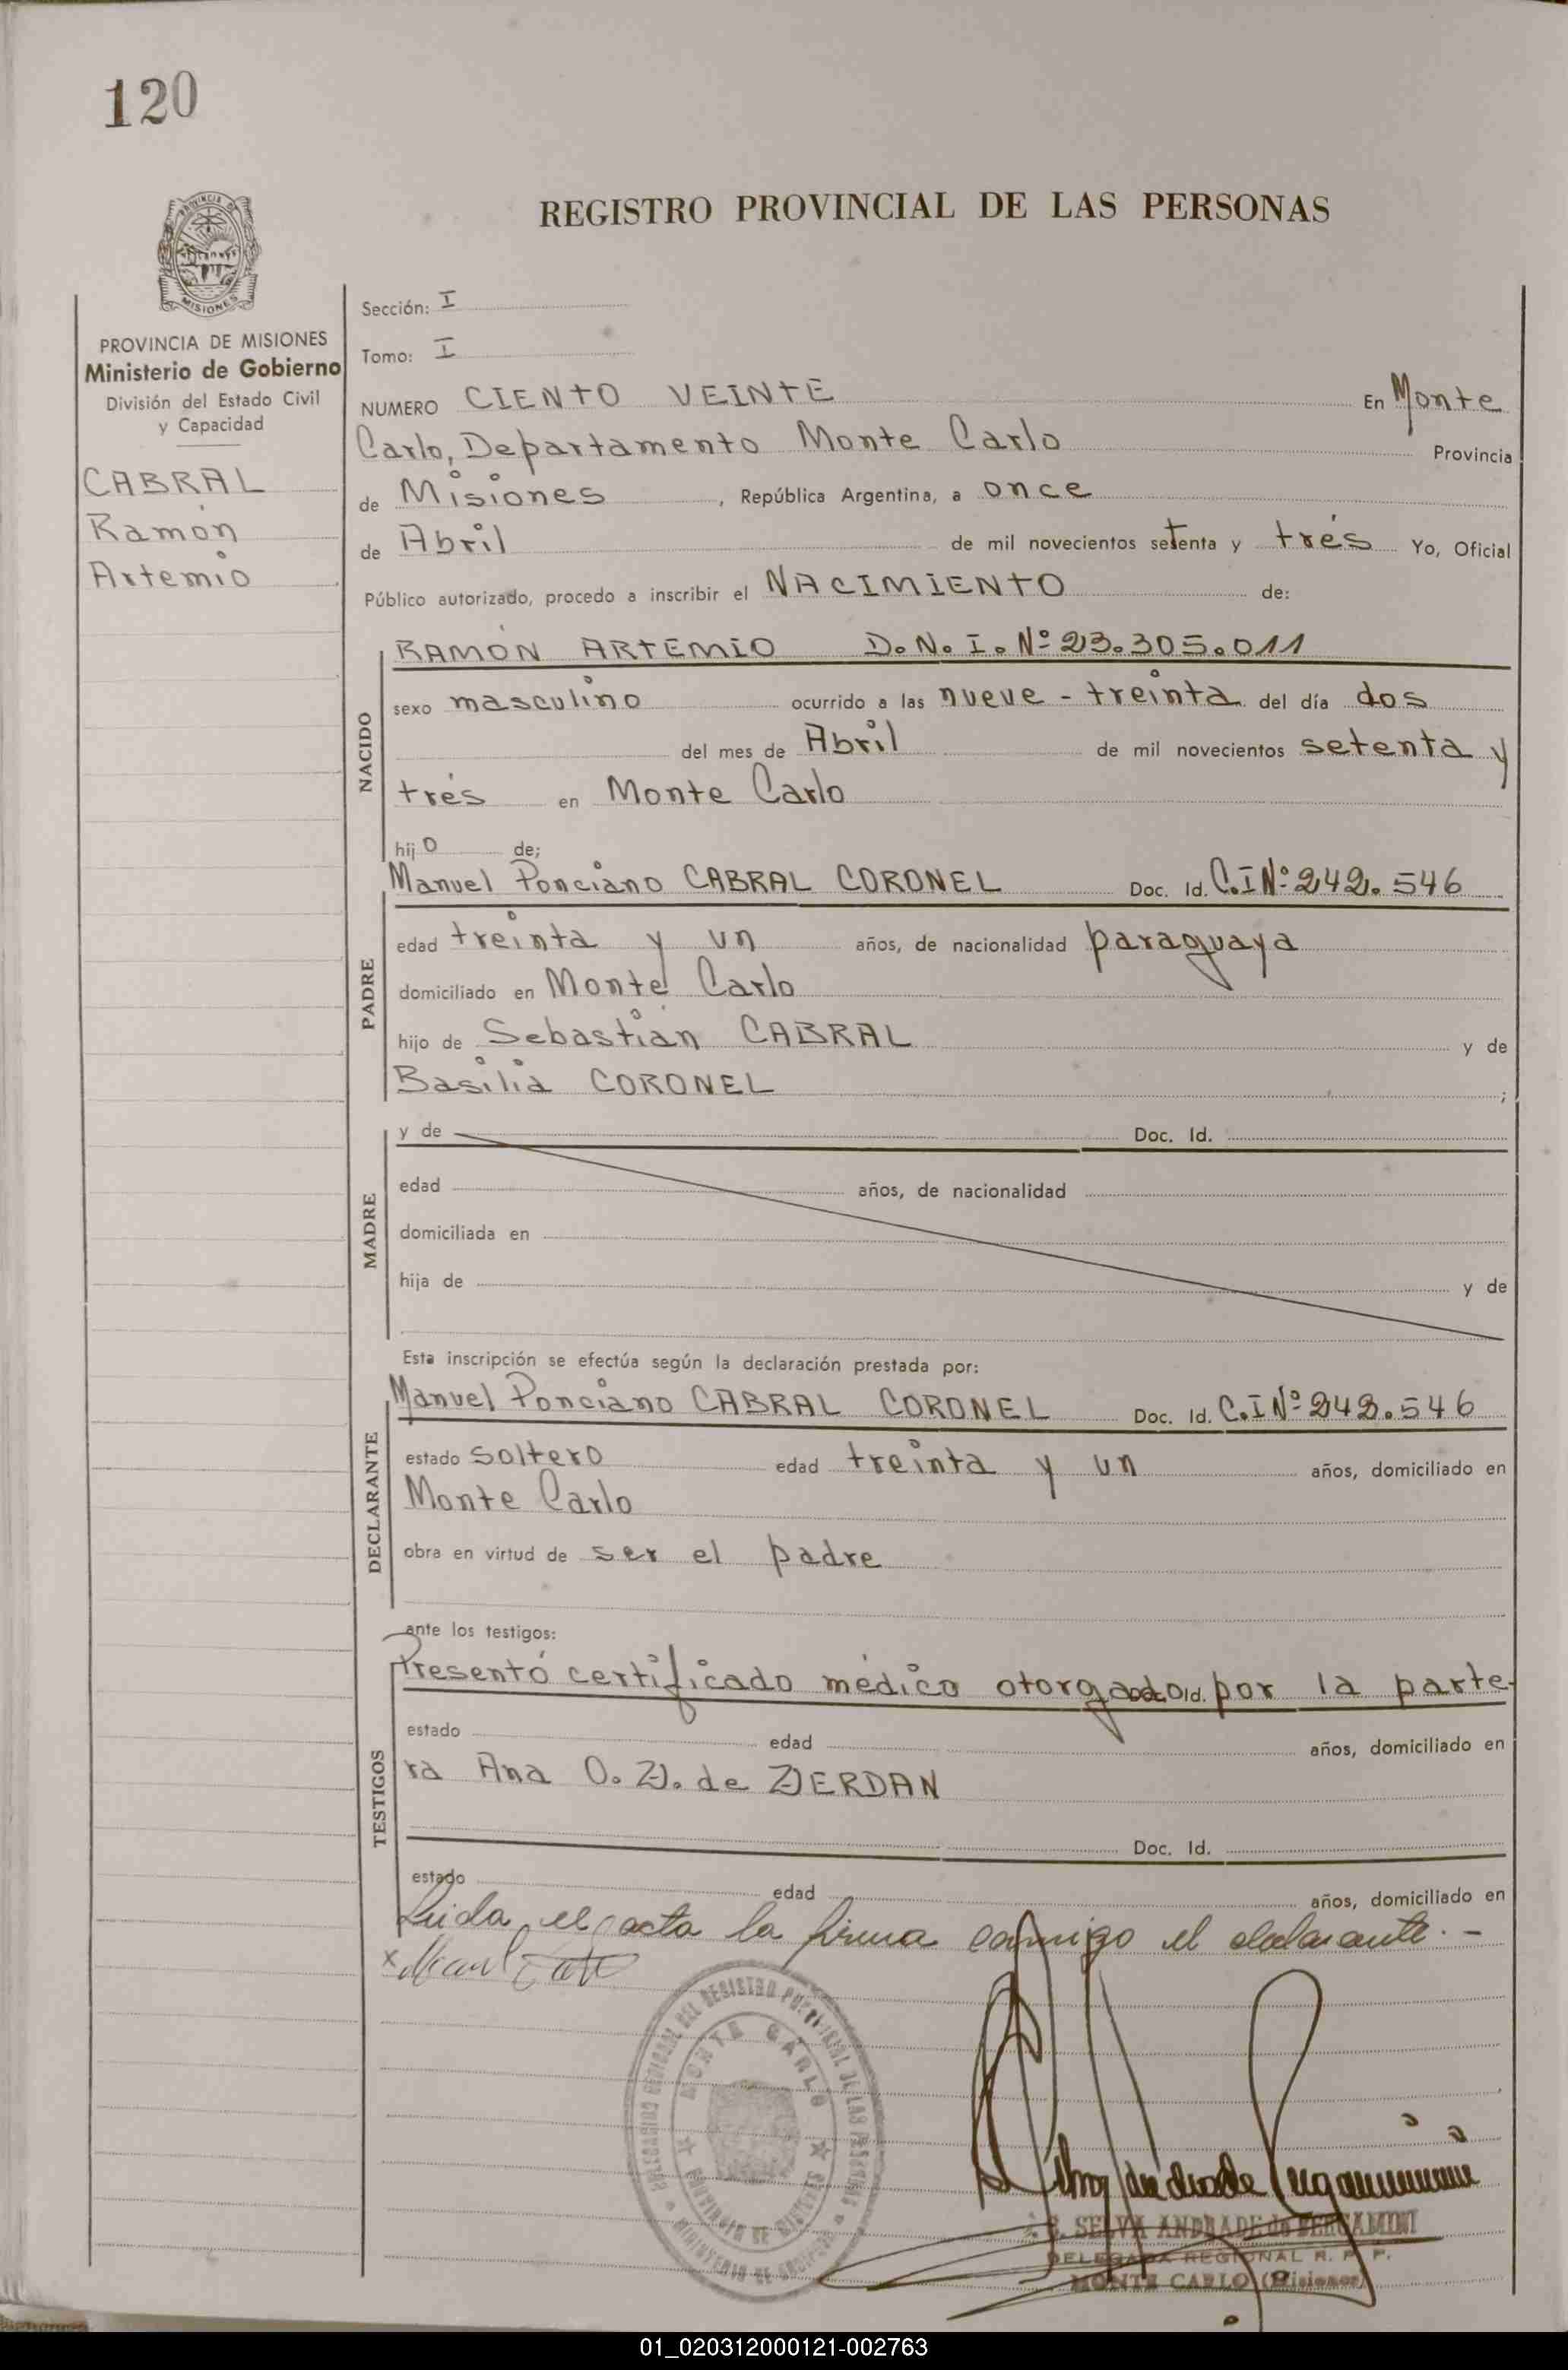 120
REGISTRO PROVINCIAL DE LAS PERSONAS
PROVINCIA DE MISIONES
Ministerio de Gobierno
División del Estado Civil
y Capacidad
CABRAL
Ramón
Artemio
Sección: I
Tomo: I
NUMERO CIENTO VEINTE En Monte
Carlo, Departamento Monte Carlo Provincia
de Misiones, República Argentina, a once
de Abril de mil novecientos setenta y trés Yo, Oficial
Público autorizado, procedo a inscribir el NACIMIENTO de:
NACIDO
RAMÓN ARTEMIO D.N.I. Nº 23.305.011
sexo masculino ocurrido a las nueve - treinta del día dos
del mes de Abril de mil novecientos setenta y
trés en Monte Carlo
hijo de;
PADRE
Manuel Ponciano CABRAL CORONEL Doc. Id. C.I Nº 242.546
edad treinta y un años, de nacionalidad paraguaya
domiciliado en Monte Carlo
hijo de Sebastián CABRAL y de
Basilia CORONEL ;
MADRE
y de Doc. Id.
edad años, de nacionalidad
domiciliada en
hija de y de
Esta inscripción se efectúa según la declaración prestada por:
DECLARANTE
Manuel Ponciano CABRAL CORONEL Doc. Id. C.I Nº 242.546
estado soltero edad treinta y un años, domiciliado en
Monte Carlo
obra en virtud de ser el padre
ante los testigos:
TESTIGOS
Presentó certificado médico otorgado Doc. Id. por la parte-
estado edad años, domiciliado en
ra Ana O. Z. de ZERDAN
Doc. Id.
estado edad años, domiciliado en
Leida el acta la firma conmigo el declarante. -
DELEGACION REGIONAL DEL REGISTRO PROVINCIAL DE LAS PERSONAS
MINISTERIO DE GOBIERNO
MONTE CARLO
PROVINCIA DE MISIONES
SELVA ANDRADE de BERGAMINI
DELEGADA REGIONAL R. P. P.
MONTE CARLO (Misiones)
01_020312000121-002763